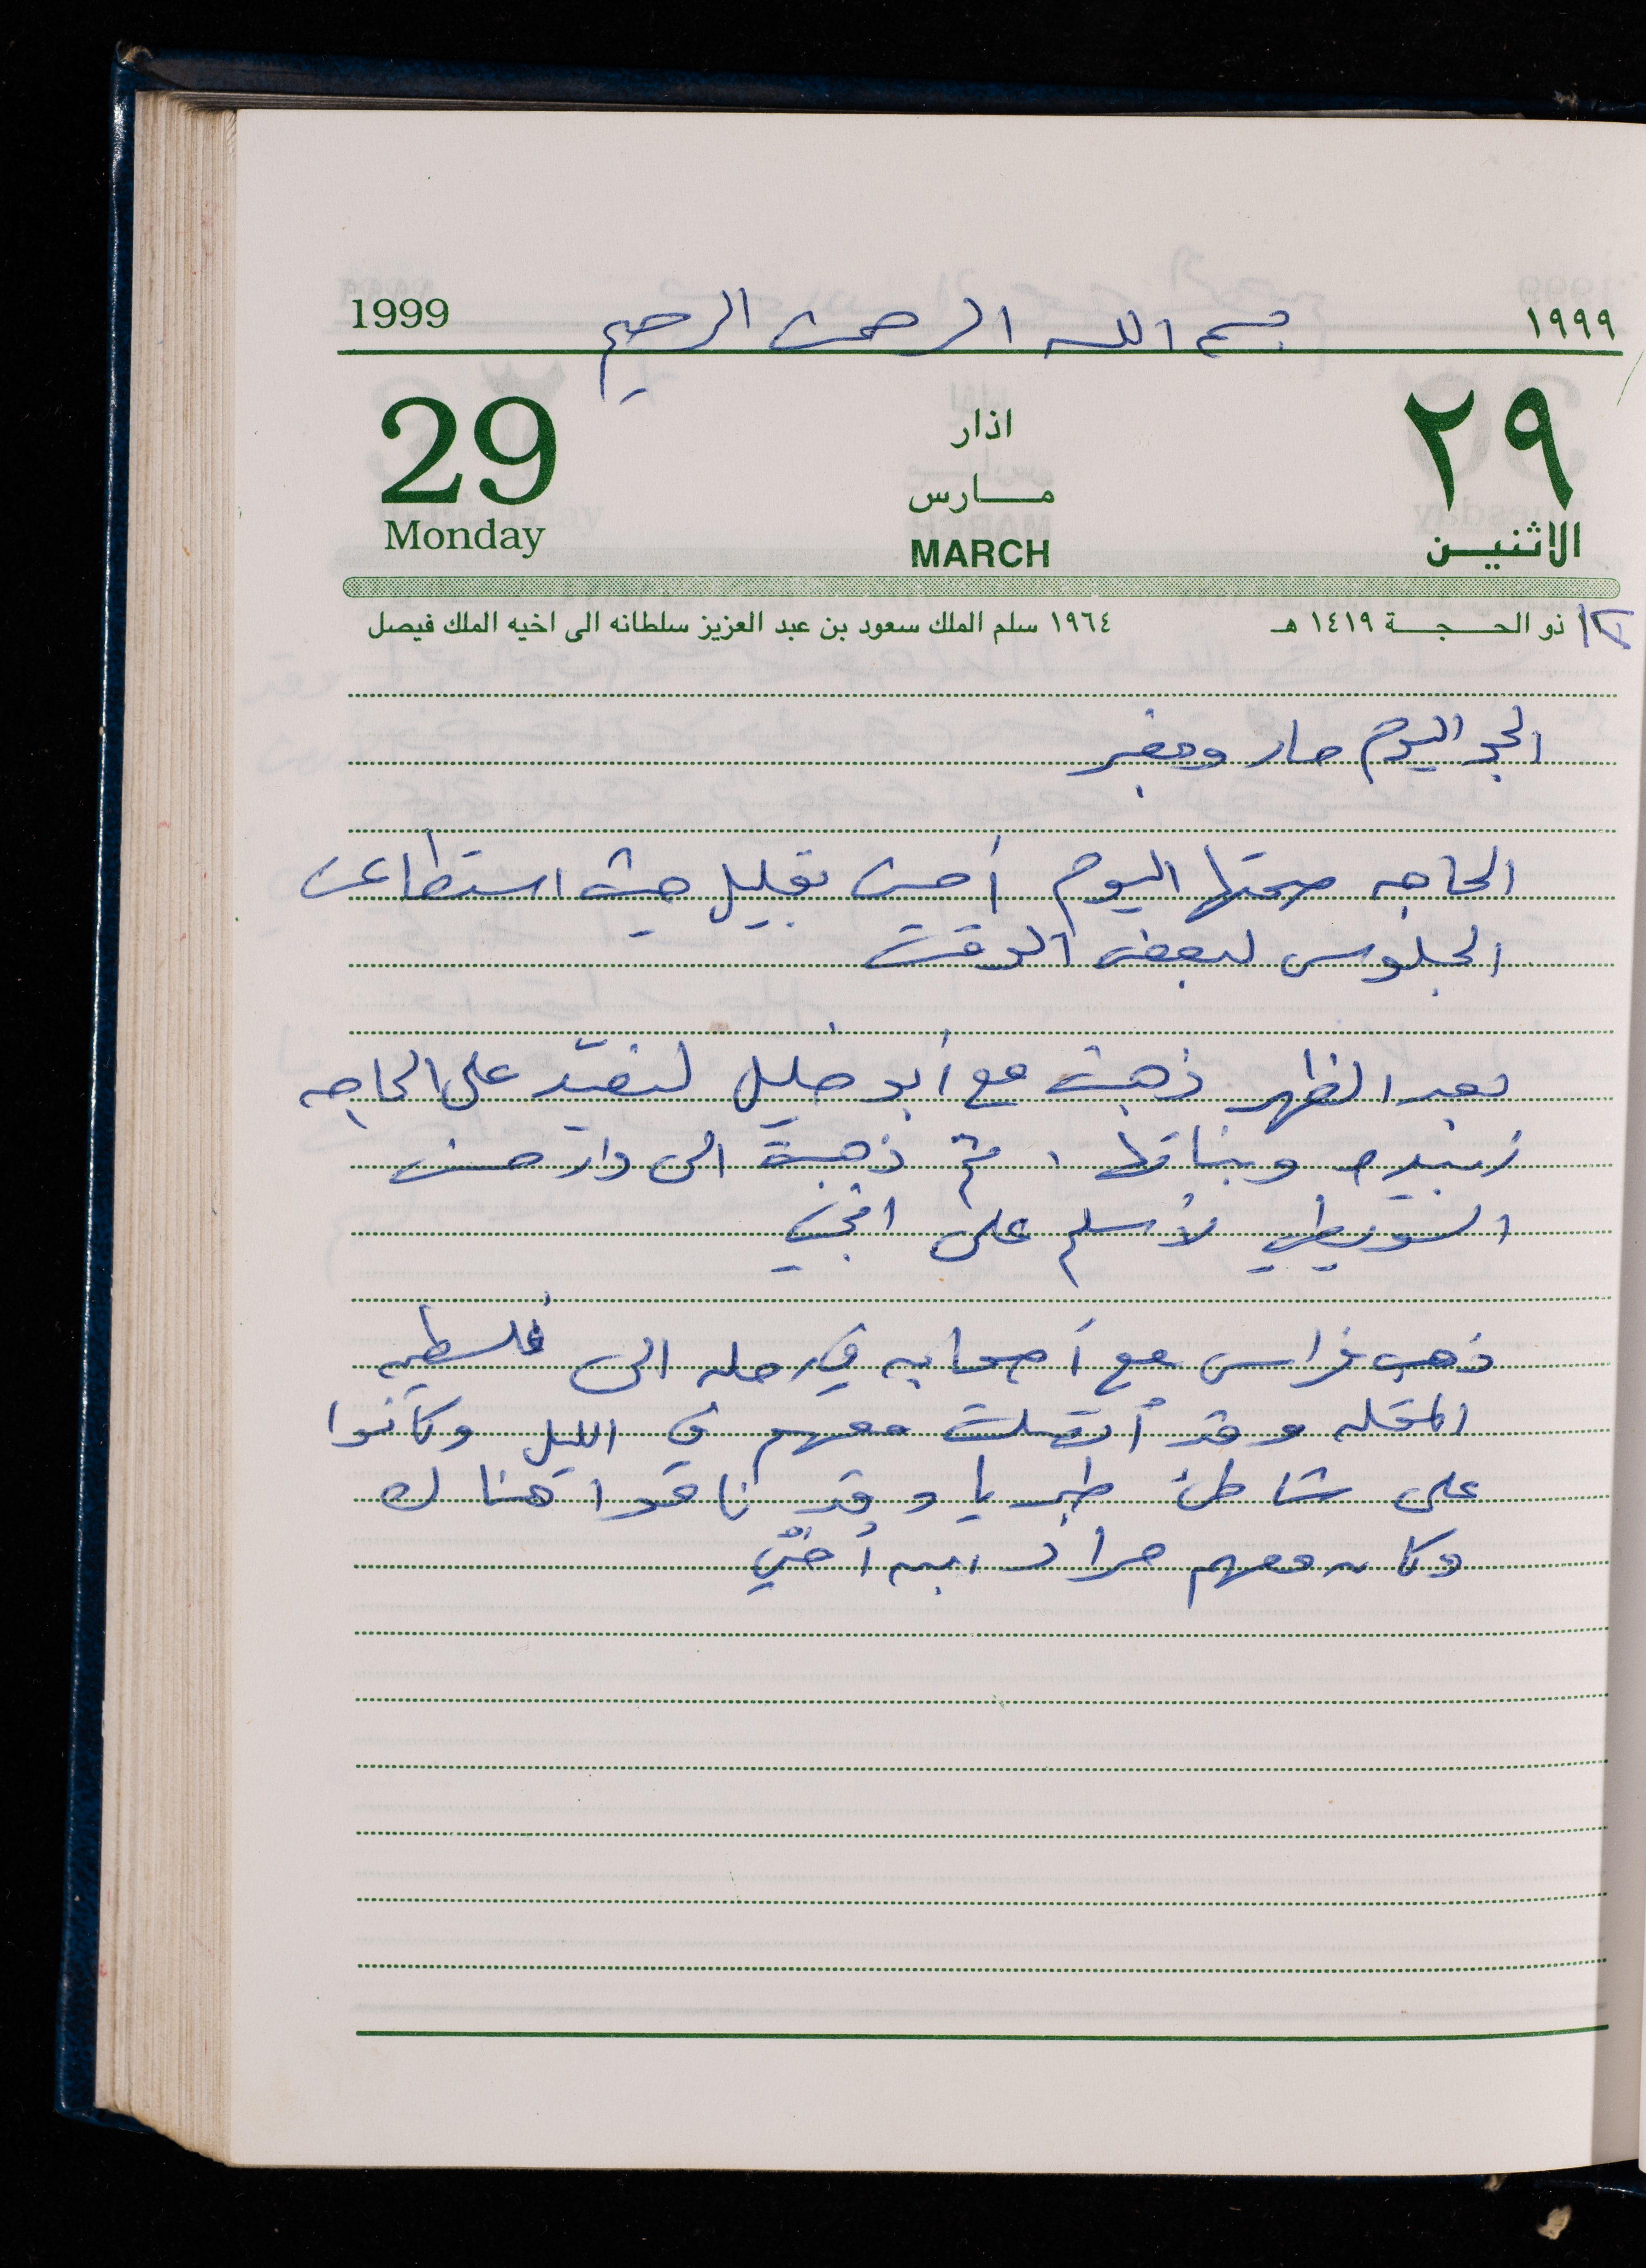 بسم الله الرحمن الرحيم
1999 ١٩٩٩
29 اذار ٢٩
مارس
Monday MARCH الاثنين
١٢ ذو الحجة ١٤١٩ هـ ١٩٦٤ سلم الملك سعود بن عبد العزيز سلطانه الى اخيه الملك فيصل
الجو اليوم حار ومغبر
الحاجه صحتها اليوم أحسن بقليل حيث استطاعت
الجلوس لبعض الوقت
بعد الظهر ذهبت مع أبو خليل لنعيّد على الحاجه
زبيده وبناتها ، ثم ذهبت الى دار حسن
السويطي لأسلم على
ذهب فراس مع أصحابه في رحله الى فلسطين
المحتله وقد أتصلت معهم في الليل وكانوا
على شاطئ طبريا وقد ناموا هناك
وكان معهم مراد ابن أختي